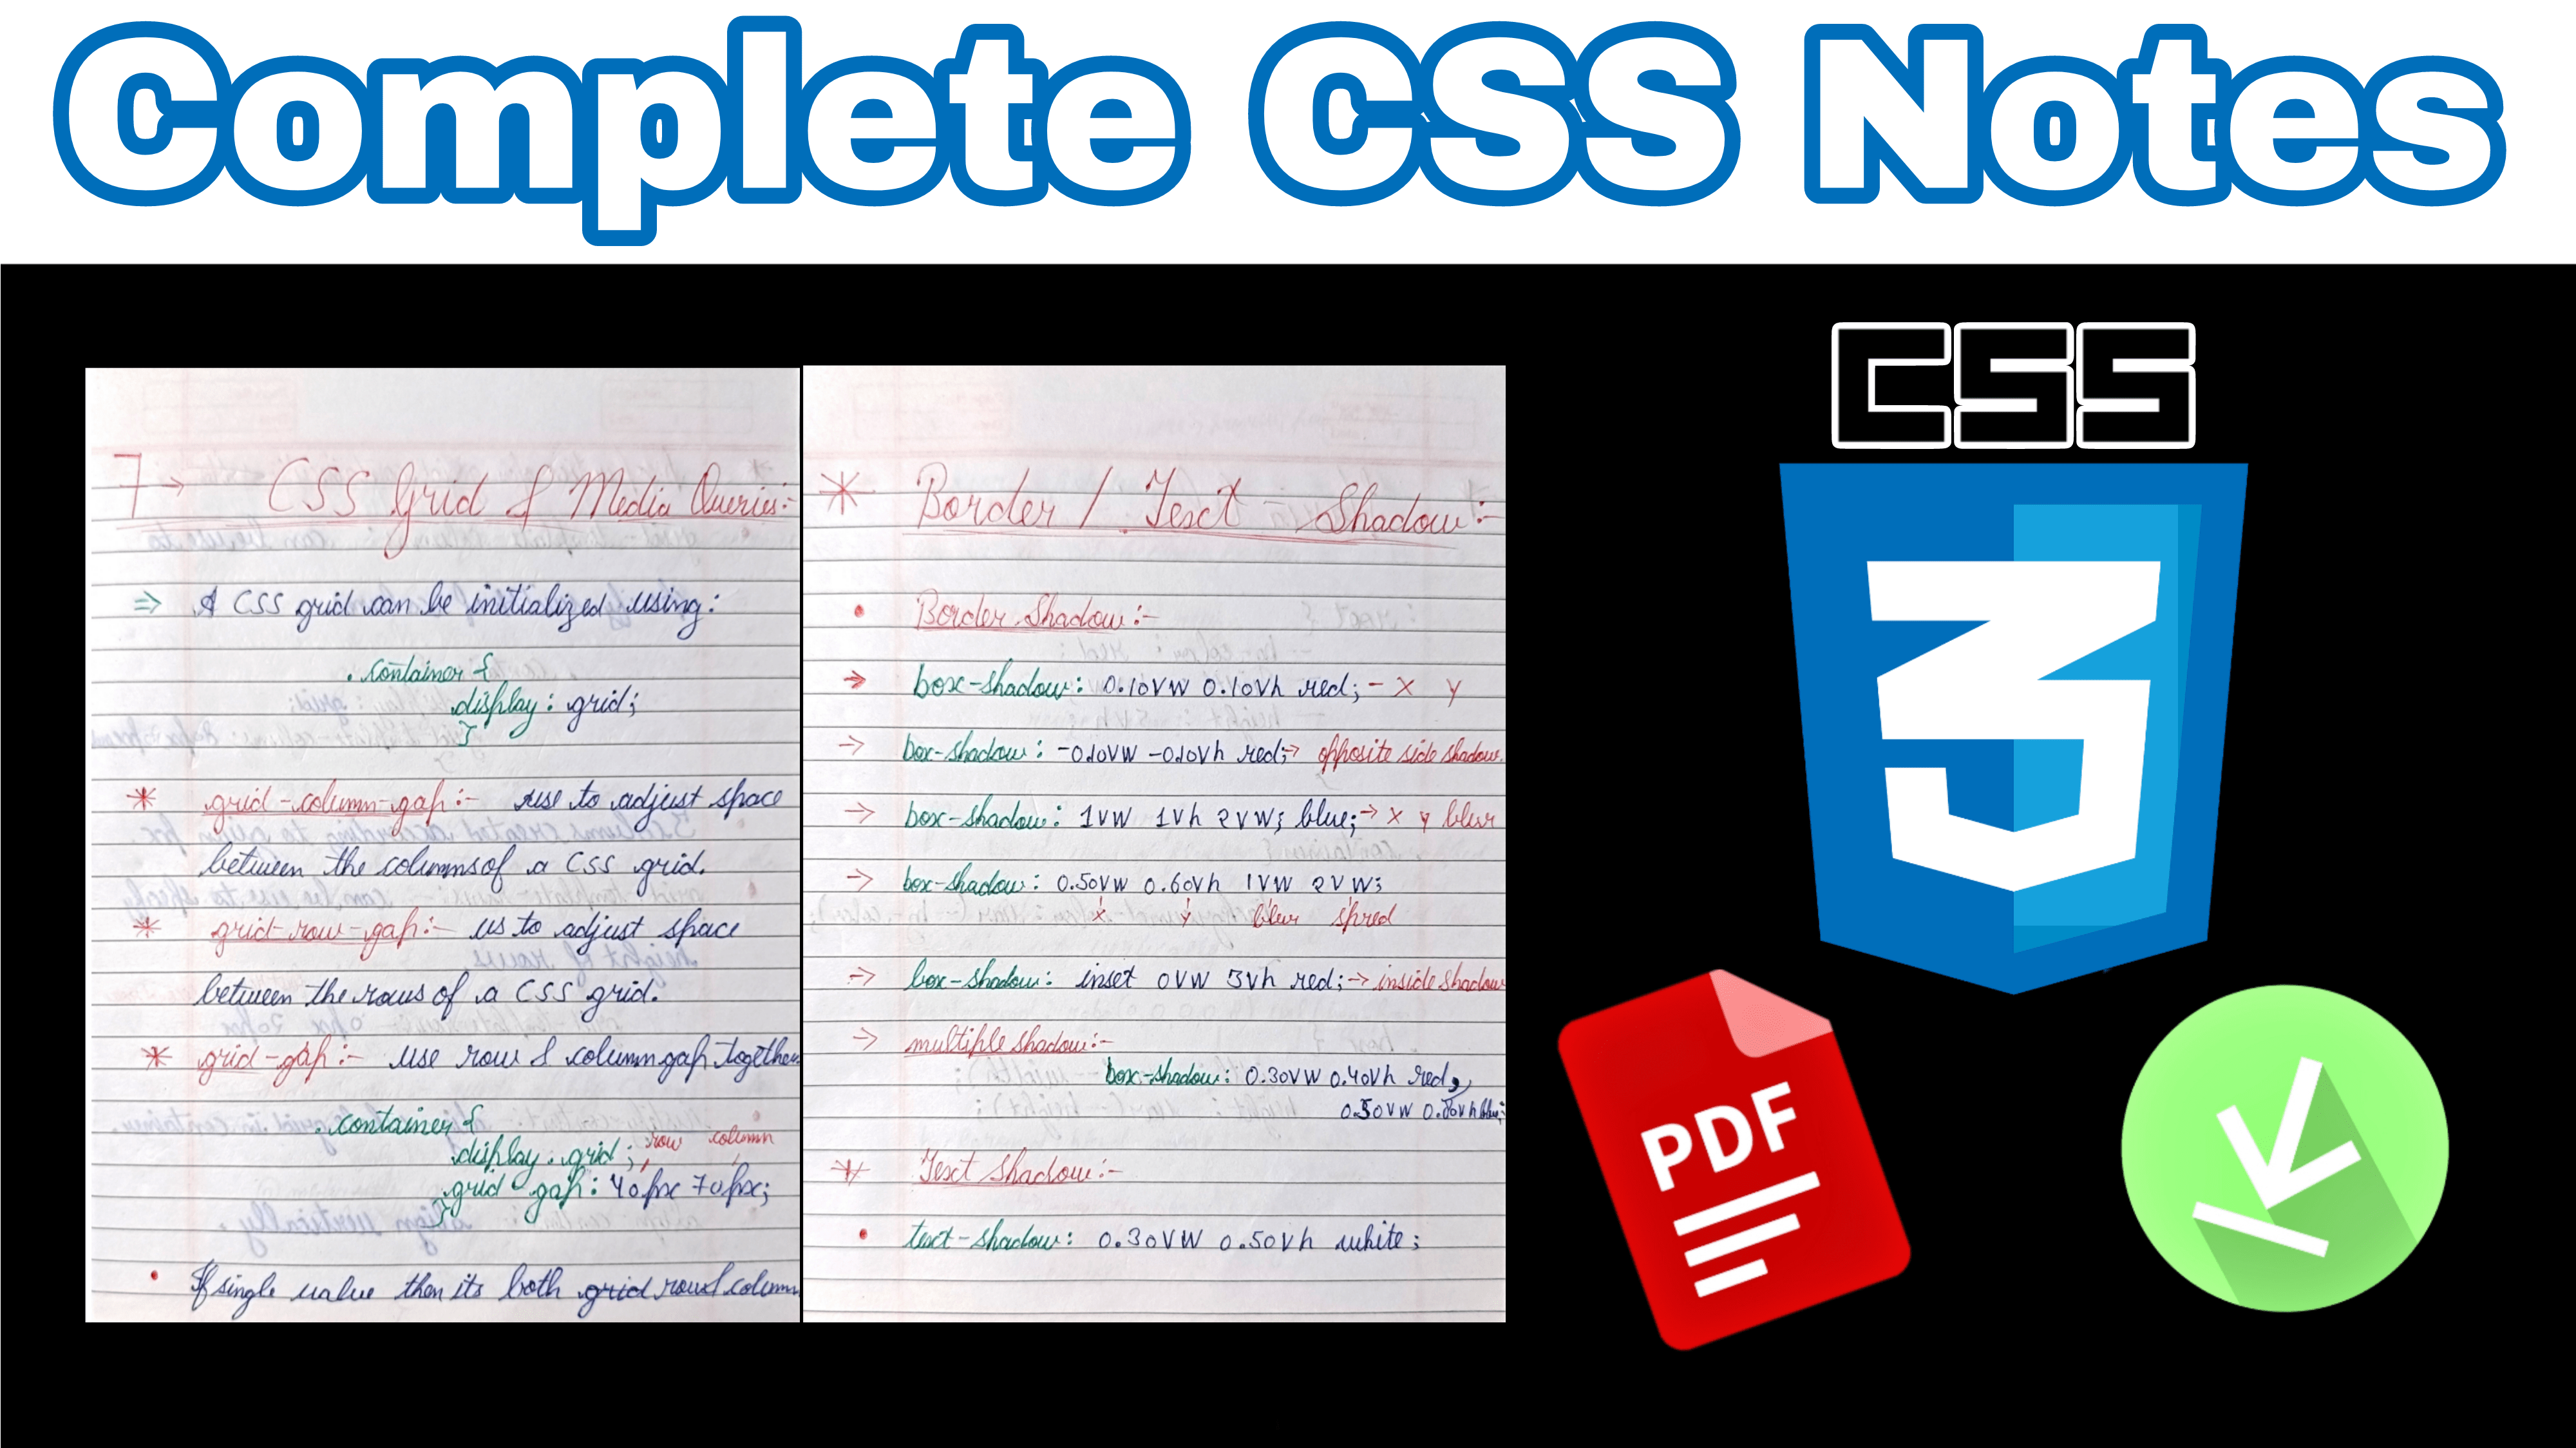 Complete CSS Notes
7→ CSS Grid & Media Queries:-
⇒ A CSS grid can be initialized using:
.container {
display: grid;
}
* grid-column-gap:- use to adjust space
between the columns of a CSS grid.
* grid-row-gap:- us to adjust space
between the rows of a CSS grid.
* grid-gap:- use row & column gap together
.container {
display: grid; row column
grid-gap: 40px 70px;
}
• If single value then its both grid row & column
* Border / Text - Shadow:-
• Border Shadow:-
→ box-shadow: 0.10vw 0.10vh red; - x y
→ box-shadow: -0.10vw -0.10vh red; → opposite side shadow.
→ box-shadow: 1vw 1vh 2vw; blue; → x y blur
→ box-shadow: 0.50vw 0.60vh 1vw 2vw;
x y blur spred
→ box-shadow: inset 0vw 5vh red; → inside shadow
→ multiple shadow:-
box-shadow: 0.30vw 0.40vh red,
0.50vw blue;
* Text Shadow:-
• text-shadow: 0.30vw 0.50vh white;
CSS
3
PDF